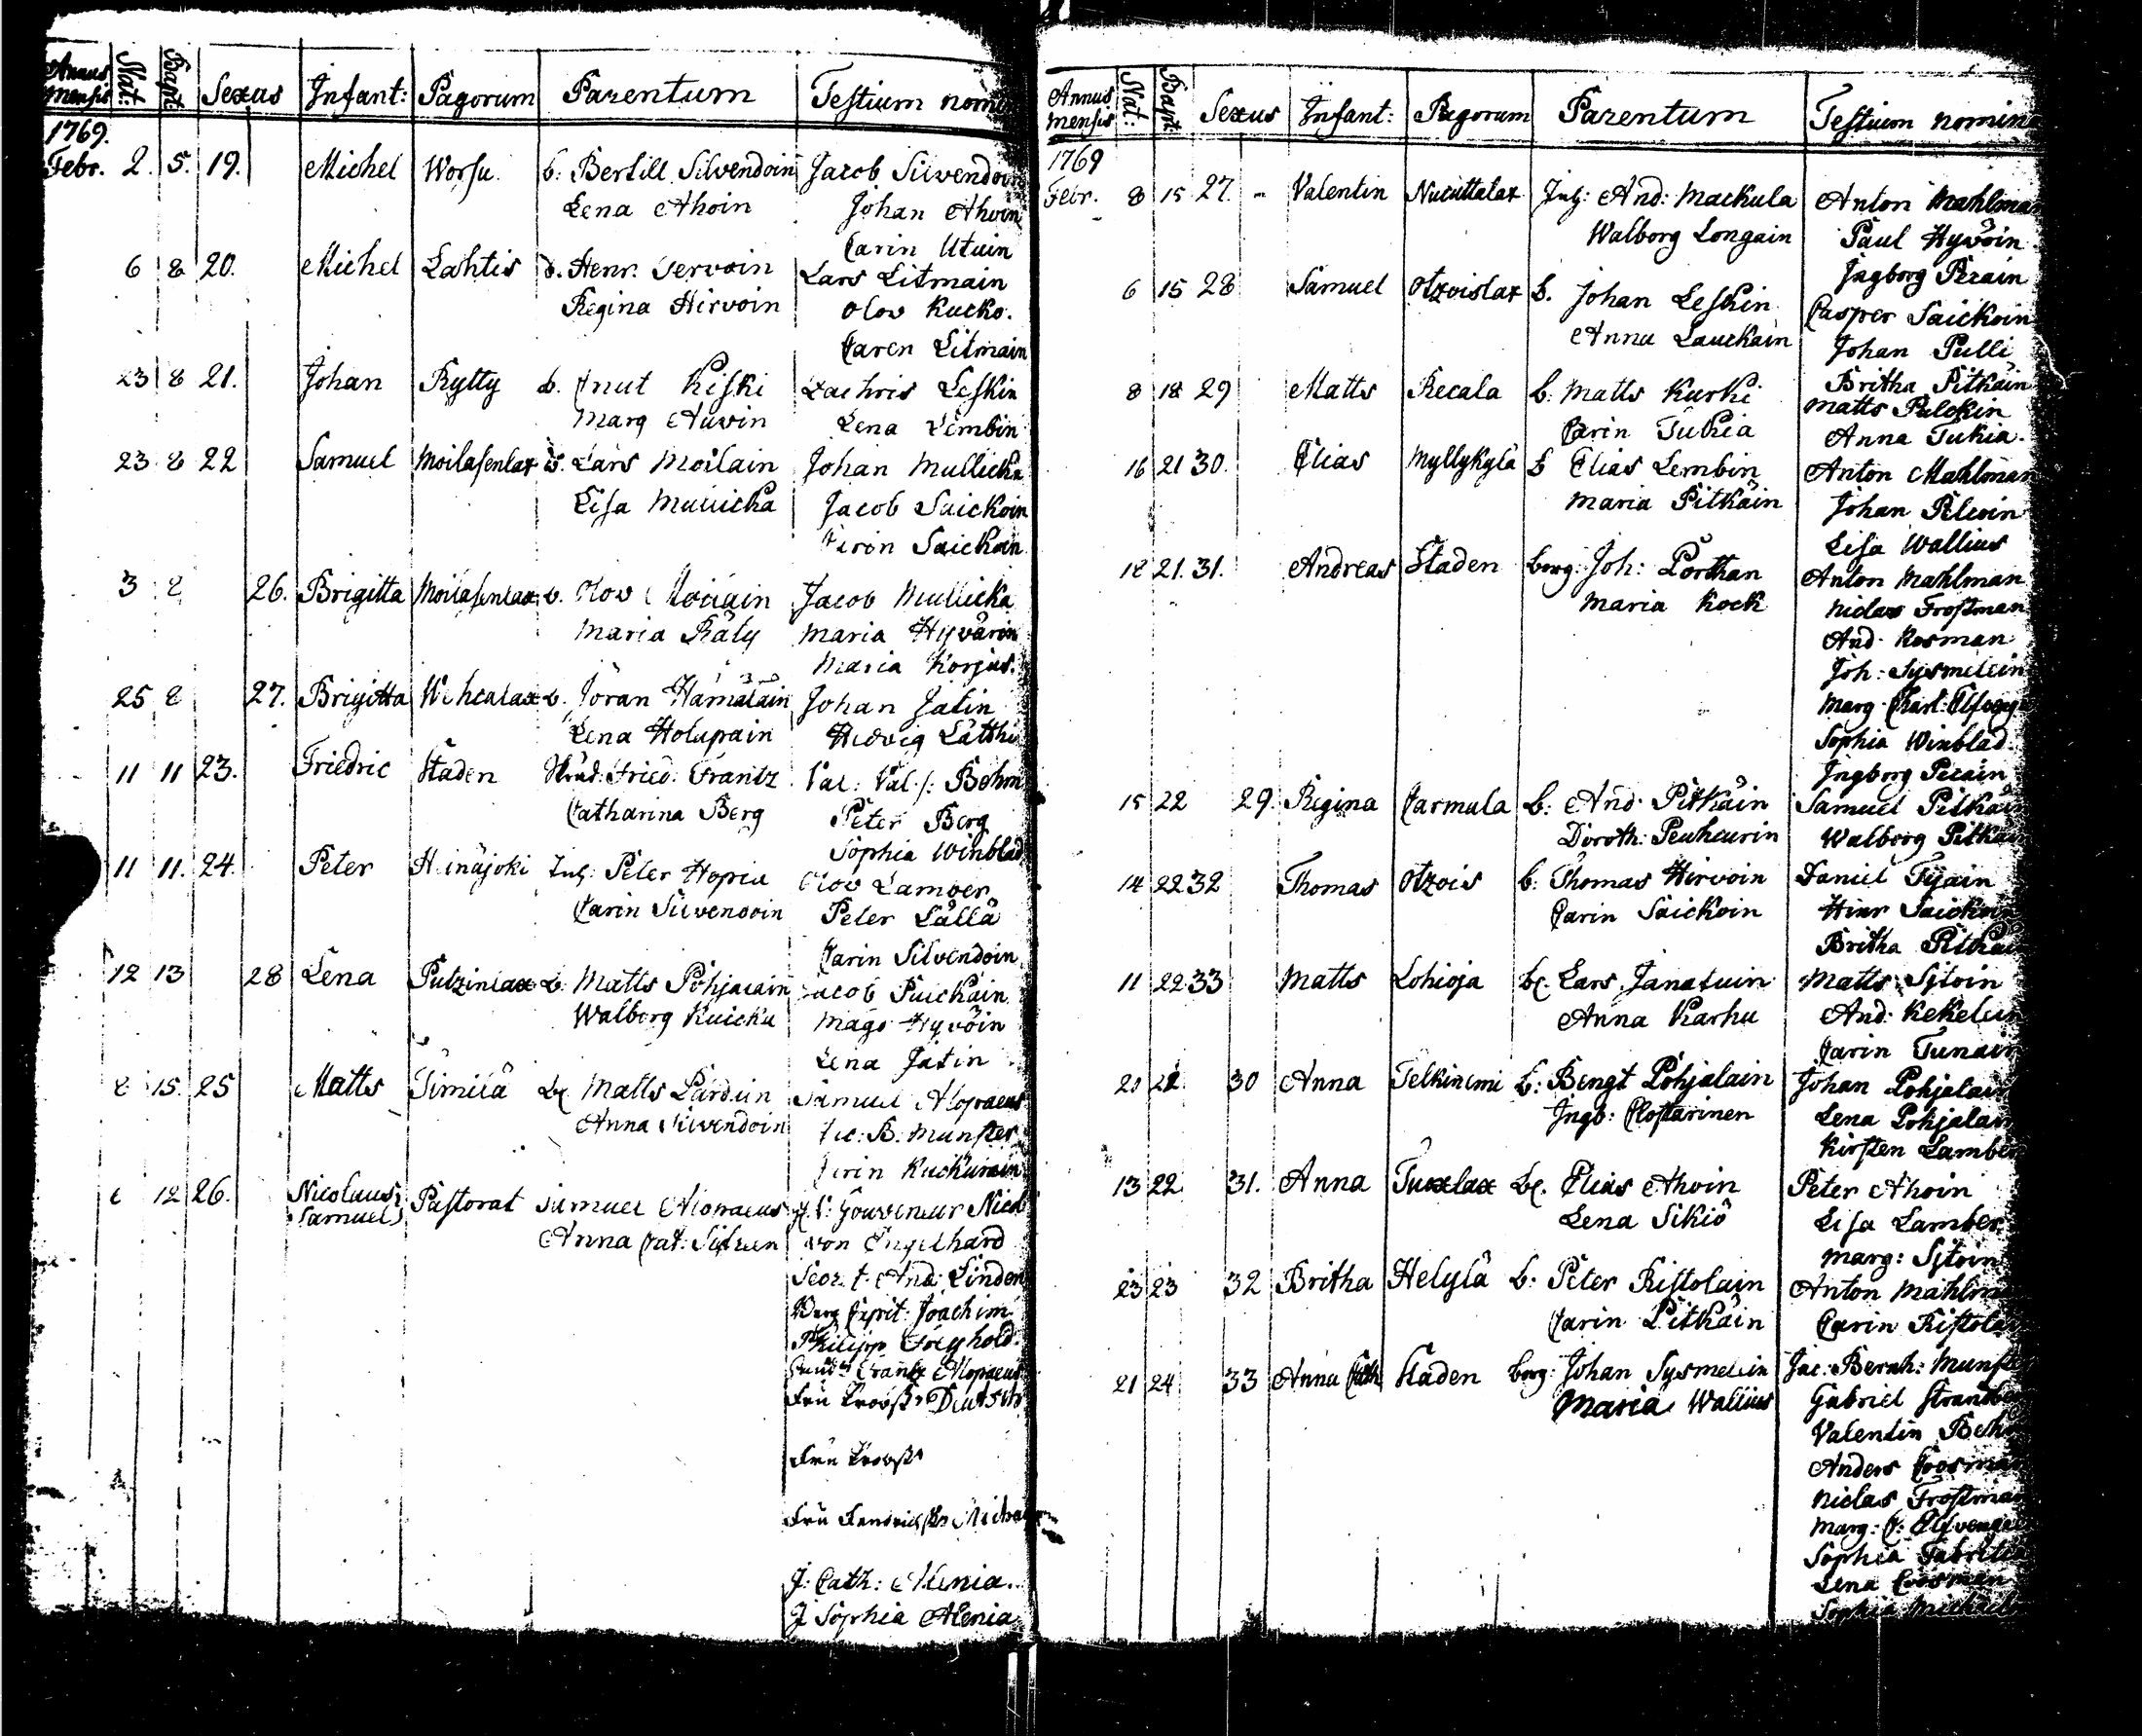 Annus mensis Nat: Bapt: Sexus Infant: Pagorum Parentum Testium nomin
1769.
Febr. 2. 5. 19. Michel Worsu b: Bertill Silvendoin Jacob Silvendoin
Lena Ahoin Johan Ahoin
Carin Utuin
6 8 20. Michel Lahtis b. Henr. Servoin Lars Litmain
Regina Hirvoin Olov Kucko.
Caren Litmain
23 8 21. Johan Rytty b. Cnut Kiski Zachris Leskin
Marg Auvin Lena Lembin
23 8 22 Samuel Moilasenlax b. Lars Moilain Johan Mullicka
Lisa Mullicka Jacob Saickoin
Saickoin
3 8 26. Brigitta Moilasenlax b. Olov Moilain Jacob Mullicka
Maria Räty Maria Hyvärin
Maria Korjus.
25 8 27. Brigitta b. Jöran Hämäläin Johan Jatin
Lena Holapain Hedvig Lätthi
11 11 23. Friedric Staden Fried: Frantz Val: Val: f: Behm
Catharina Berg Peter Berg
Sophia Winblad
11 11. 24. Peter H.inäjoki Inh: Peter Hopia Olov Lamber
Carin Silvendoin Peter Lällä
Carin Silvendoin
12 13 28 Lena Putzinlax b. Matts Pohjalain Jacob Puickain
Walborg Kuicka Mags Hyvöin
Lena Jatin
8 15. 25 Matts Matts Samuel Alopaeus
Anna Silvendoin Jac: B: Munster
Kuckurain
6 12 26. Nicolaus Samuel Pastorat Samuel Alopaeus Gouverneur Nicol
Anna Cat: von Engelhard
And: Linden
Berg Joachim
Philipp Freyhold.
Frantz Alopaeus
Fru
Fru
Fru
J: Cath: Alenia.
J Sophia Alenia
Annus mensis Nat: Bapt: Sexus Infant: Pagorum Parentum Testium nomin
1769
Febr. 8 15 27. - Valentin Nucuttalax Inh: And: Mackula Anton Mahlman
Walborg Longain Paul Hyvöin
Ingborg Perain
6 15 28 Samuel Otzoislax b. Johan Leskin Casper Saickoin
Anna Lauckain Johan Pulli
Britha Pitkäin
8 18 29 Matts Recala b: Matts Kurki Matts Pulckin
Carin Tukia Anna Tukia.
16 21 30. Elias Myllykylä b Elias Lembin Anton Mahlman
Maria Pitkäin Johan Pilvoin
Lisa Wallius
18 21. 31. Andreas Staden borg: Joh: Porthan Anton Mahlman
Maria Kock Niclas Frostman
And. Kosman
Joh: Sysmelein
Marg. Charl:
Sophia Winblad.
Ingborg Perain
15 22 29. Regina Carmula b: And: Pitkäin Samuel Pitkäin
Doroth: Peuheurin Walborg Pitkäin
14 22 32 Thomas Otzois b: Thomas Hirvoin Daniel Tyäin
Carin Saickoin Hinr Saickoin
Britha Pitkäin
11 22 33 Matts Lohioja Lars Janatuin Matts Sjtoin
Anna Karhu And: Kekelein
Carin Tunain
20 22 30 Anna Telkinemi b: Bengt Pohjalain Johan Pohjalain
Ingb: Clostarinen Lena Pohjalain
Kirsten Lamber
13 22 31. Anna Tuxlax Elias Ahoin Peter Ahoin
Lena Sikiö Lisa Lamber
Marg: Sjtoin
23 23 32 Britha Helylä b: Peter Ristolain Anton Mahlman
Carin Pitkäin Carin Ristolain
21 24 33 Anna Cath Staden borg: Johan Sysmelein Jac: Bernh: Munster
Maria Wallius Gabriel Strandbe
Valentin Behm
Anders Cosman
Niclas Frostman
Marg: C:
Sophia Fabritia
Lena Cosman
Sophia